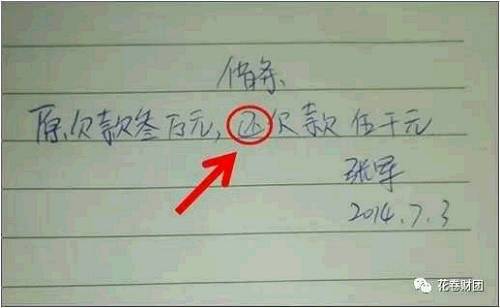 借条
原欠款叁万元，还欠款伍千元
张军
2014.7.3
花卷财团